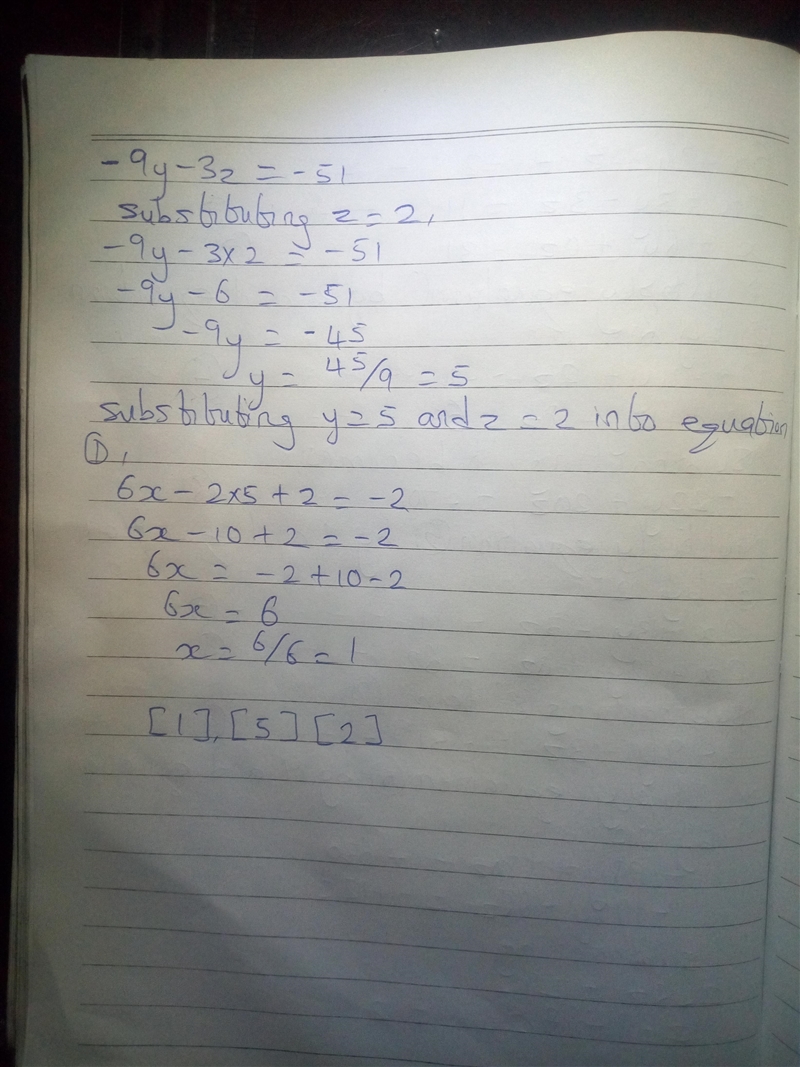 -9y-3z = -51
substituting z=2,
-9y - 3×2 = -51
-9y - 6 = -51
-9y = -45
y = 45/9 = 5
substituting y=5 and z=2 into equation
①,
6x - 2×5 + 2 = -2
6x - 10 + 2 = -2
6x = -2 + 10 - 2
6x = 6
x = 6/6 = 1
[1],[5][2]